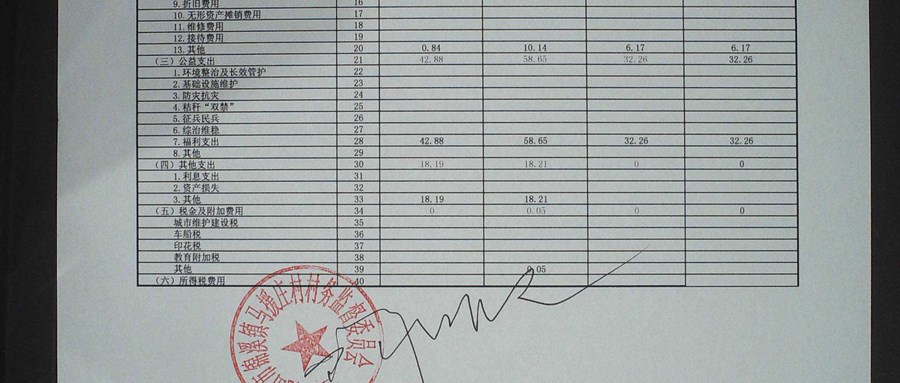 9.折旧费用 16
10.无形资产摊销费用 17
11.维修费用 18
12.接待费用 19
13.其他 20 0.84 10.14 6.17 6.17
(三)公益支出 21 42.88 58.65 32.26 32.26
1.环境整治及长效管护 22
2.基础设施维护 23
3.防灾抗灾 24
4.秸秆“双禁” 25
5.征兵民兵 26
6.综治维稳 27
7.福利支出 28 42.88 58.65 32.26 32.26
8.其他 29
(四)其他支出 30 18.19 18.21 0 0
1.利息支出 31
2.资产损失 32
3.其他 33 18.19 18.21
(五)税金及附加费用 34 0 0.05 0 0
城市维护建设税 35
车船税 36
印花税 37
教育附加税 38
其他 39 0.05
(六)所得税费用 40
溪镇马援庄村村务监督委员会